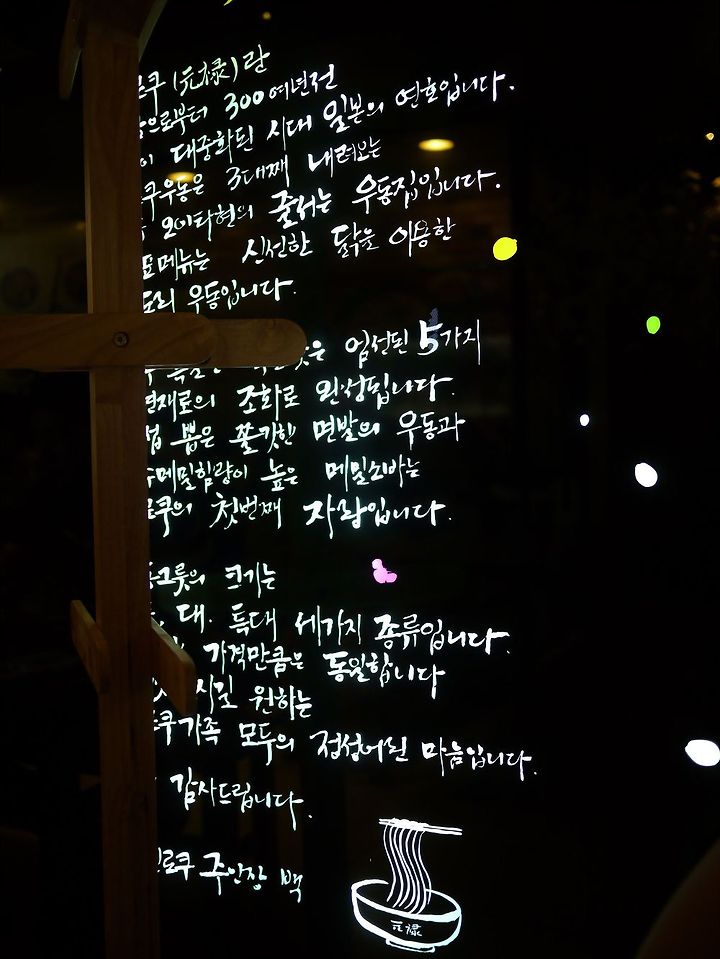 로쿠 (元禄)란
으로부터 300여년전
이 대중화된 시대 일본의 연호입니다.
쿠우동은 3대째 내려오는
오이타현의 줄서는 우동집입니다.
표메뉴는 신선한 닭을 이용한
도리 우동입니다.
은 엄선된 5가지
연재료의 조화로 완성됩니다.
접 뽑은 쫄깃한 면발의 우동과
메밀함량이 높은 메밀소바는
로쿠의 첫번째 자랑입니다.
동그릇의 크기는
대. 특대 세가지 종류입니다.
가격만큼은 동일합니다
시길 원하는
로쿠가족 모두의 정성어린 마음입니다.
감사드립니다.
로쿠 주인장 백
元禄